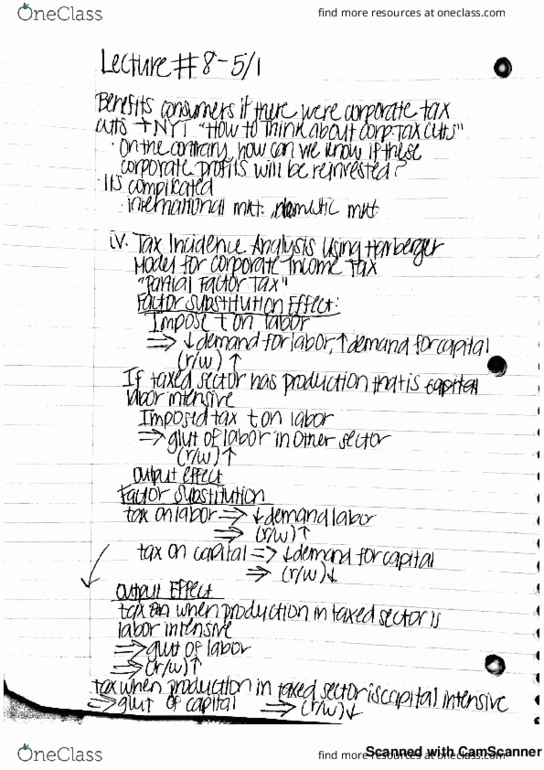 OneClass
find more resources at oneclass.com
Lecture #8-5/1
Benefits consumers if there were corporate tax
cuts → NYT "How to think about corp. tax cuts"
· On the contrary, how can we know if these
corporate profits will be reinvested?
· It's complicated
· international mkt. domestic mkt
iv. Tax Incidence Analysis Using Harberger
Model for Corporate Income Tax
"Partial Factor Tax"
Factor Substitution Effect:
Impose t on labor
⇒ ↓ demand for labor, ↑ demand for capital
(r/w) ↑
If taxed sector has production that is capital
labor intensive
Imposed tax t on labor
⇒ glut of labor in other sector
(r/w) ↑
Output effect
Factor Substitution
tax on labor ⇒ ↓ demand labor
⇒ (r/w) ↑
tax on capital ⇒ ↓ demand for capital
⇒ (r/w) ↓
Output Effect
tax on when production in taxed sector is
labor intensive
⇒ glut of labor
⇒ (r/w) ↑
tax when production in taxed sector is capital intensive
⇒ glut of capital ⇒ (r/w) ↓
Scanned with CamScanner
OneClass
find more resources at oneclass.com